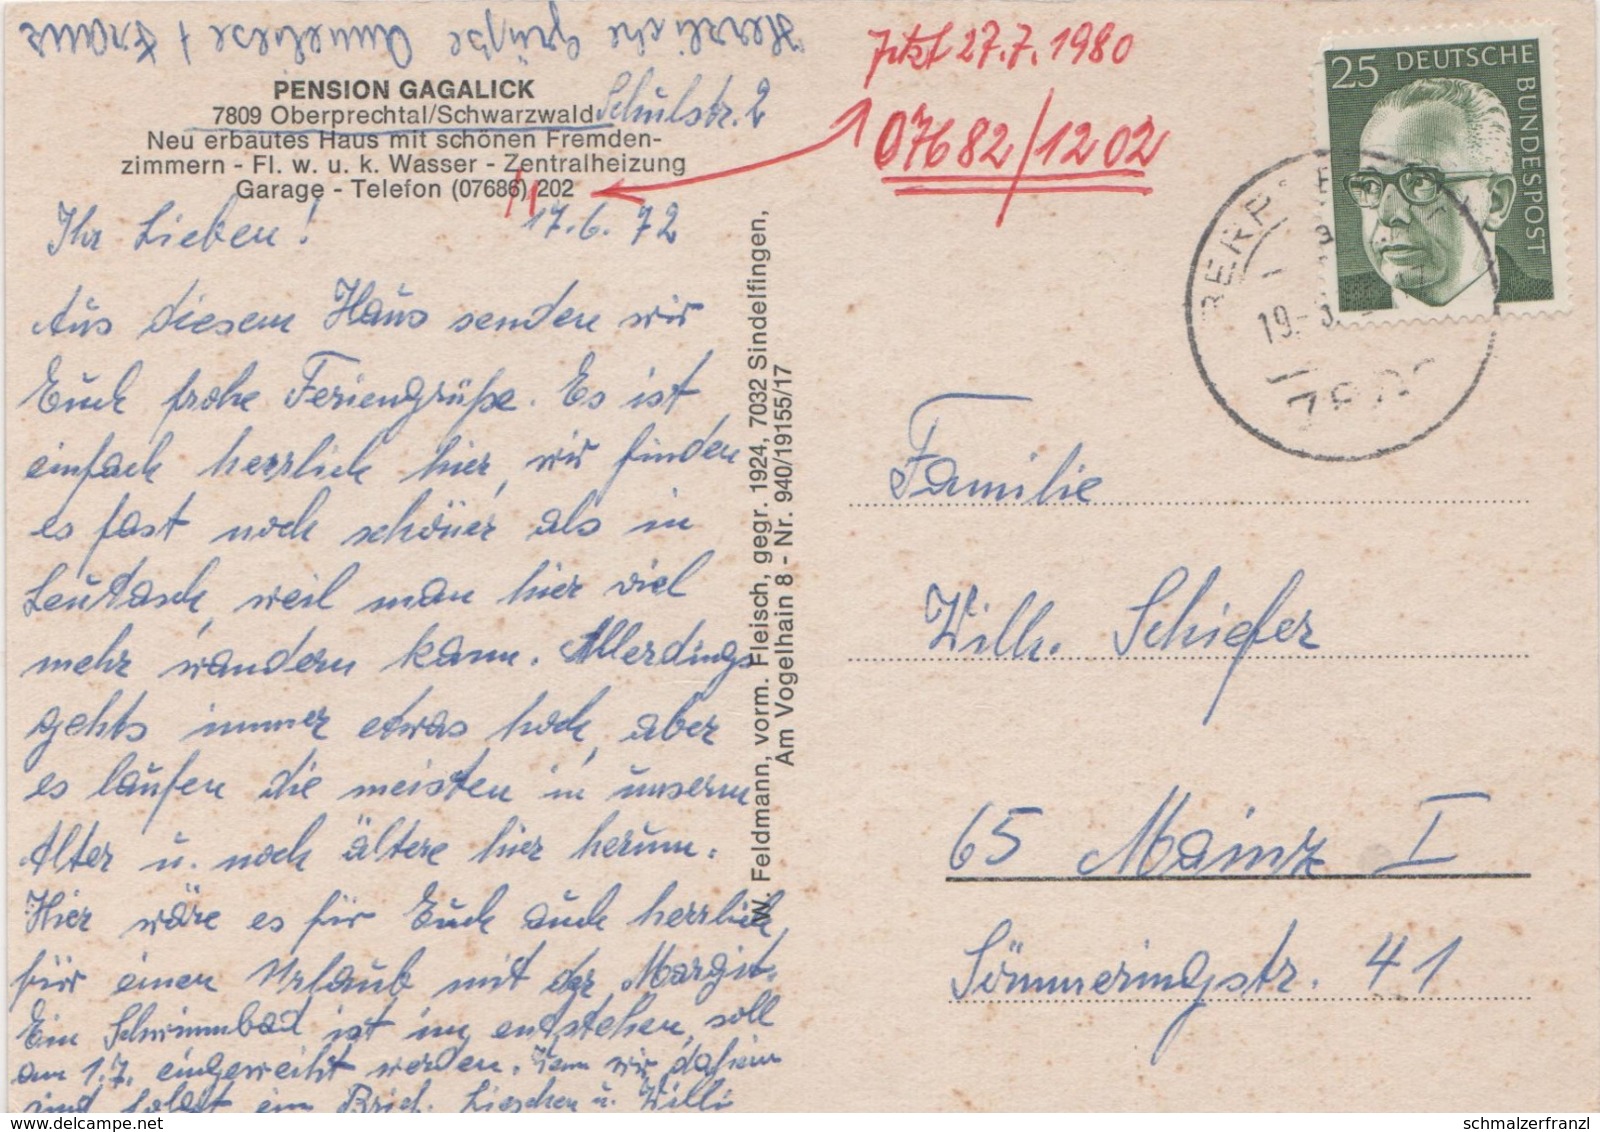 Herzliche Grüße Anneliese + Franz
PENSION GAGALICK
7809 Oberprechtal/Schwarzwald Schulstr. 2
Neu erbautes Haus mit schönen Fremden-
zimmern - Fl. w. u. k. Wasser - Zentralheizung
Garage - Telefon (07686) 202
Jetzt 27.7.1980
07682/1202
17.6.72
Ihr Lieben!
Aus diesem Haus senden wir
Euch frohe Feriengrüße. Es ist
einfach herrlich hier, wir finden
es fast noch schöner als in
Leutasch, weil man hier viel
mehr wandern kann. Allerdings
gehts immer etwas hoch, aber
es laufen die meisten in unserm
Alter u. noch ältere hier herum.
Hier wäre es für Euch auch herrlich,
für einen Urlaub mit der Margit.
Ein Schwimmbad ist im entstehen, soll
am 1.7. eingeweiht werden. Wenn wir daheim
sind folgt ein Brief. Lieschen u. Willi
W. Feldmann, vorm. Fleisch, gegr. 1924, 7032 Sindelfingen,
Am Vogelhain 8 - Nr. 940/19155/17
25 DEUTSCHE
BUNDESPOST
19.-
Familie
Wilh. Schiefer
65 Mainz I
Sömmeringstr. 41
www.delcampe.net
schmalzerfranzl